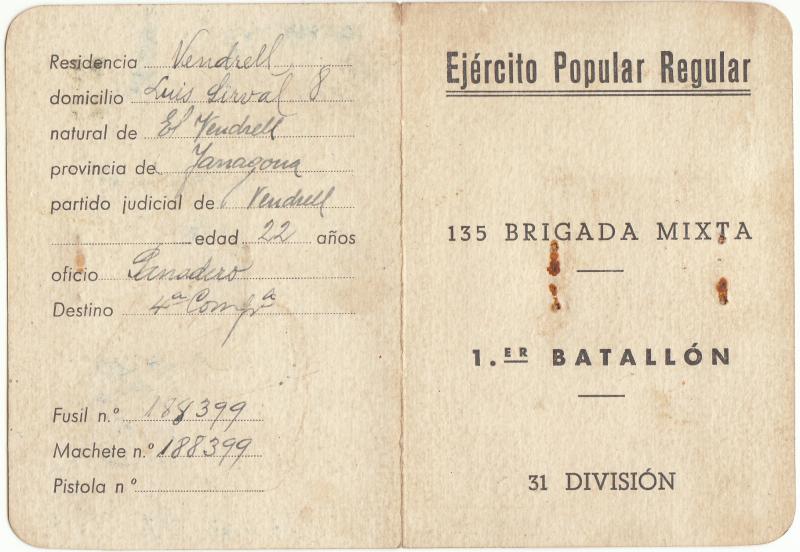 Residencia Vendrell
domicilio Luis Sirval 8
natural de El Vendrell
provincia de Tarragona
partido judicial de Vendrell
edad 22 años
oficio Panadero
Destino 4ª Compª
Fusil n.º 188399
Machete n.º 188399
Pistola nº
Ejército Popular Regular
135 BRIGADA MIXTA
1.ER BATALLÓN
31 DIVISIÓN